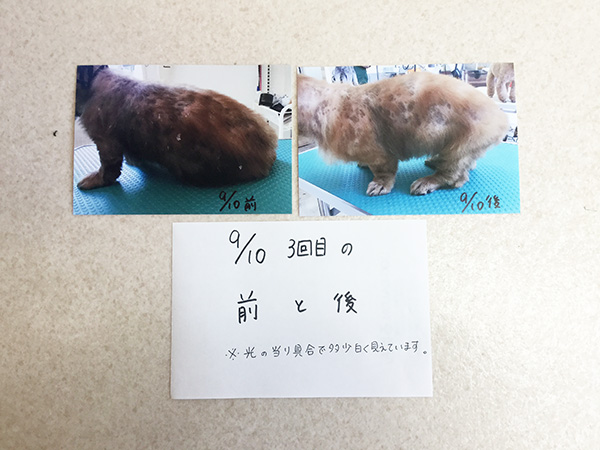 9/10 前
9/10 後
9/10 3回目の
前と後
※光の当り具合で多少白く見えています。